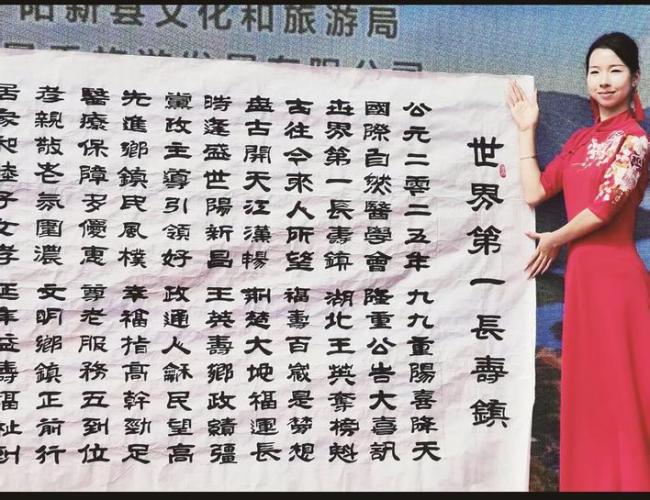 阳新县文化和旅游局
旅游发展有限公司
世界第一長壽鎮
公元二零二五年 九九重陽喜降天
國際自然醫學會 隆重公告大喜訊
世界第一長壽鎮 湖北王英奪榜魁
古往今來人所望 福壽百歲是夢想
盘古開天江漢暢 荆楚大地福運長
時逢盛世陽新昌 王英壽鄉政績彊
黨政主導引領好 政通人龢民望高
先進鄉鎮民風樸 幸福指高幹勁足
醫療保障多優惠 尊老服務五到位
孝親敬老氛圍濃 文明鄉鎮正前行
居家和睦子女孝 延年益壽福祉到